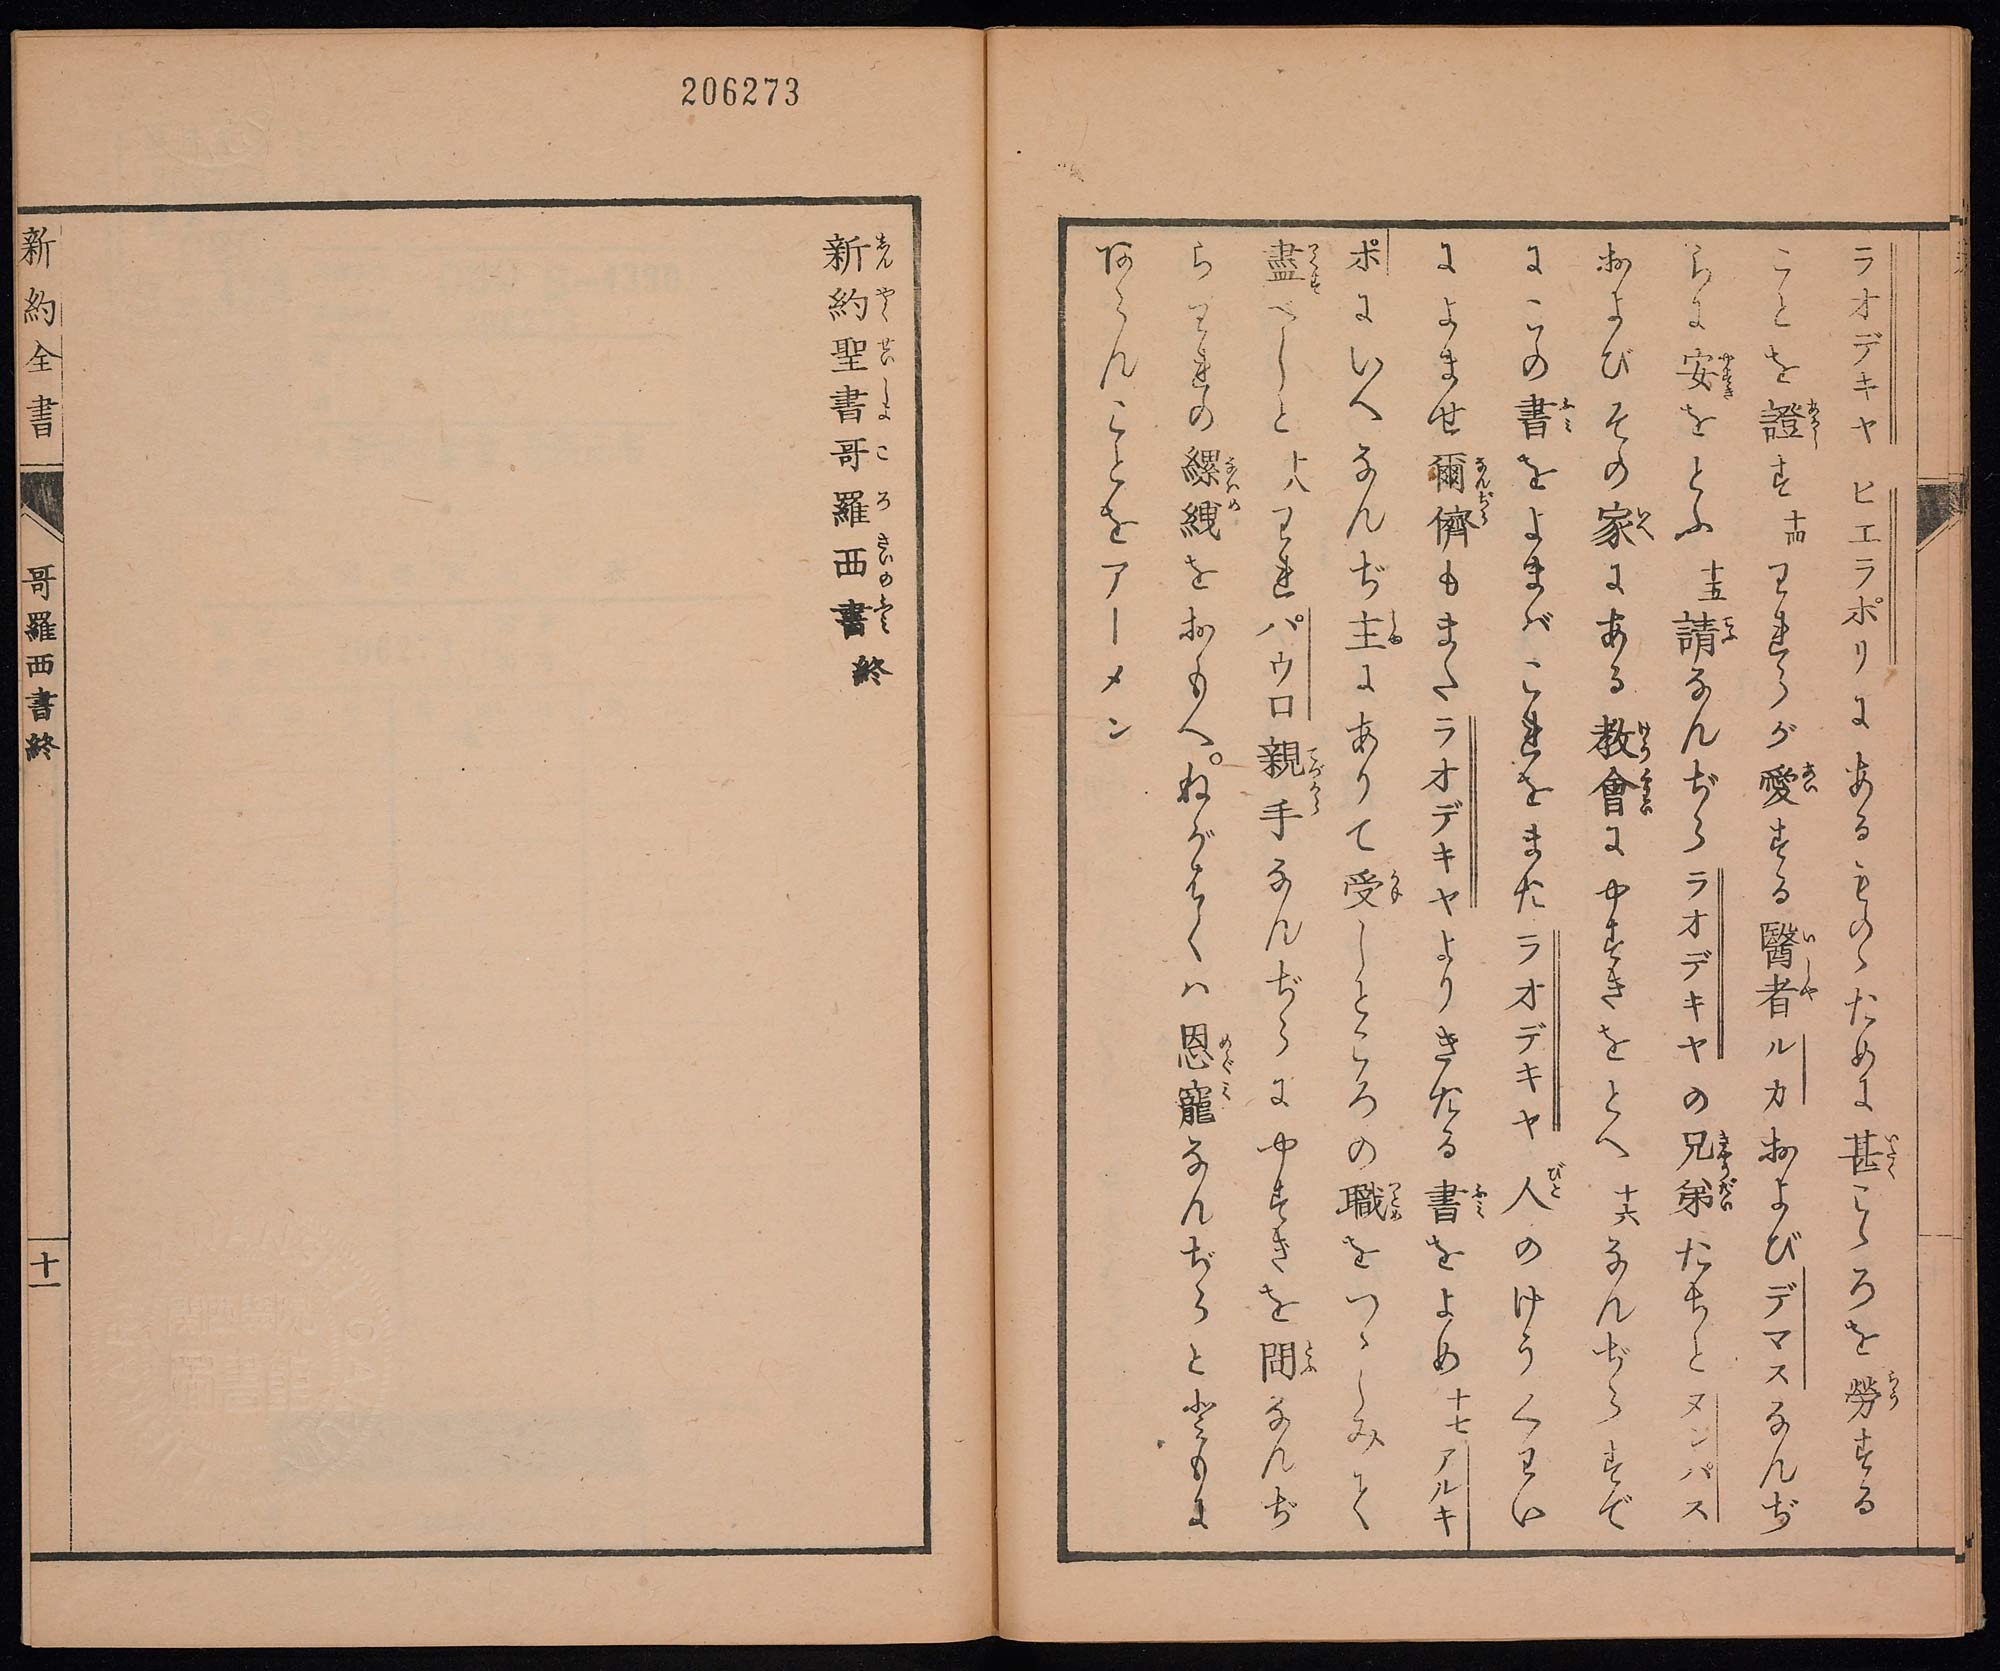 ラオデキヤ ヒエラポリにあるものゝために甚こゝろを勞する
ことを證す 十四 われらが愛する醫者ルカおよびデマスなんぢ
らに安をとふ 十五 請なんぢらラオデキヤの兄弟たちとヌンパス
およびその家にある教會にやすきをとへ 十六 なんぢらすで
にこの書をよまばこれをまたラオデキヤ人のけうくわい
によませ爾儕もまたラオデキヤよりきたる書をよめ 十七 アルキ
ポにいへなんぢ主にありて受しところの職をつゝしみて
盡べしと 十八 われパウロ親手なんぢらにやすきを問なんぢ
らわれの縲絏をおもへ。ねがはくハ恩寵なんぢらとともに
あらんことをアーメン
206273
新約聖書哥羅西書 終
新約全書 哥羅西書終 十一